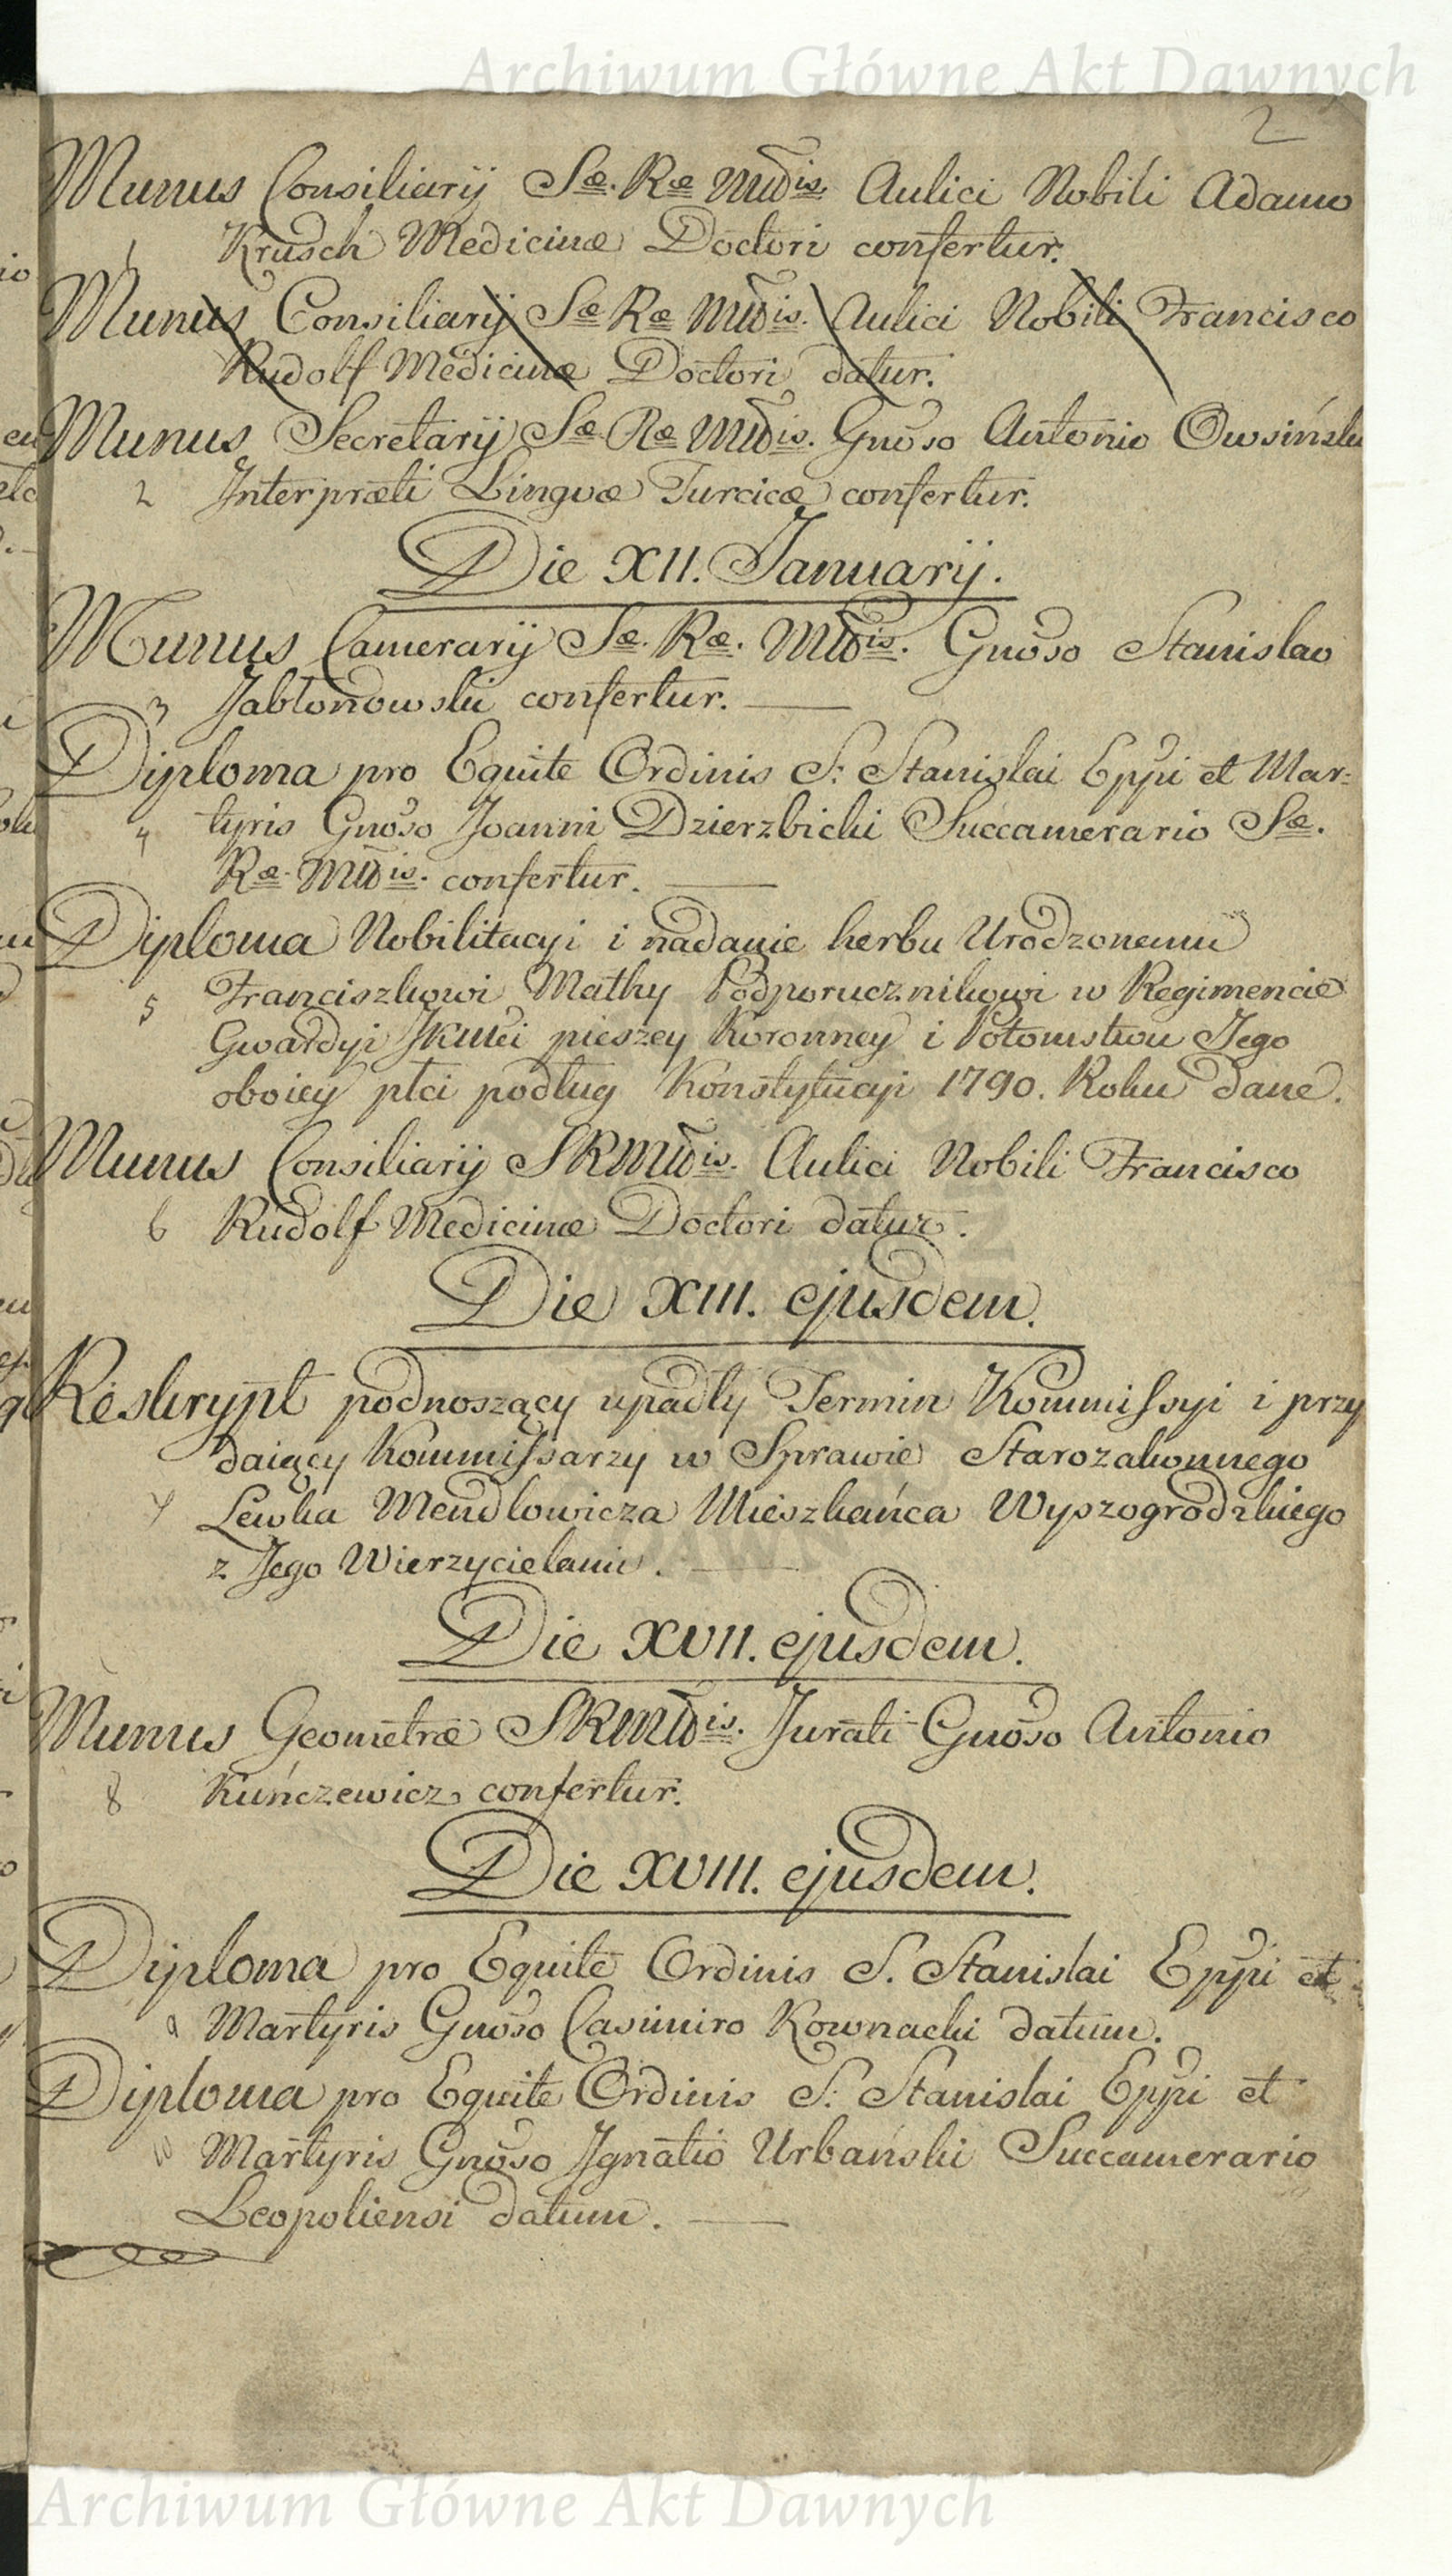 Archiwum Główne Akt Dawnych
2
Munus Consiliarij Sæ. Ræ Mttis. Aulici Nobili Adamo
1 Krusch Medicinæ Doctori confertur.
Munus Consiliarij Sæ Ræ Mttis. Aulici Nobili Francisco
Rudolf Medicinæ Doctori datur.
Munus Secretarij Sæ Ræ Mttis. Gnoso Antonio Owsińsku
2 Interpræti Lingvæ Turcicæ confertur.
Die XII. Januarij.
Munus Camerarij Sæ. Ræ. Mttis. Gnoso Stanislao
3 Jabłonowski confertur.
Diploma pro Equite Ordinis S: Stanislai Eppi et Mar=
4 tyris Gnoso Joanni Dzierzbicki Succamerario Sæ.
Ræ. Mttis. confertur.
Diploma Nobilitacyi i nadanie herbu Urodzonemu
5 Franciszkowi Mathy Podporucznikowi w Regimencie
Gwardyi JKMci pieszey Koronney i Potomstwu Jego
oboiey płci podług Konstytucyi 1790. Roku dane.
Munus Consiliarij SRMttis. Aulici Nobili Francisco
6 Rudolf Medicinæ Doctori datur.
Die XIII. ejusdem.
Reskrypt podnoszący upadły Termin Kommissyi i przy
daiący Kommissarzy w Sprawie Starozakonnego
7 Lewka Mendlowicza Mieszkańca Wyszogrodzkiego
z Jego Wierzycielami.
Die XVII. ejusdem.
Munus Geometræ SRMttis. Jurati Gnoso Antonio
8 Kuńczewicz confertur.
Die XVIII. ejusdem.
Diploma pro Equite Ordinis S. Stanislai Eppi et
9 Martyris Gnoso Casimiro Kownacki datum.
Diploma pro Equite Ordinis S: Stanislai Eppi et
10 Martyris Gnoso Ignatio Urbański Succamerario
Leopoliensi datum.
Archiwum Główne Akt Dawnych